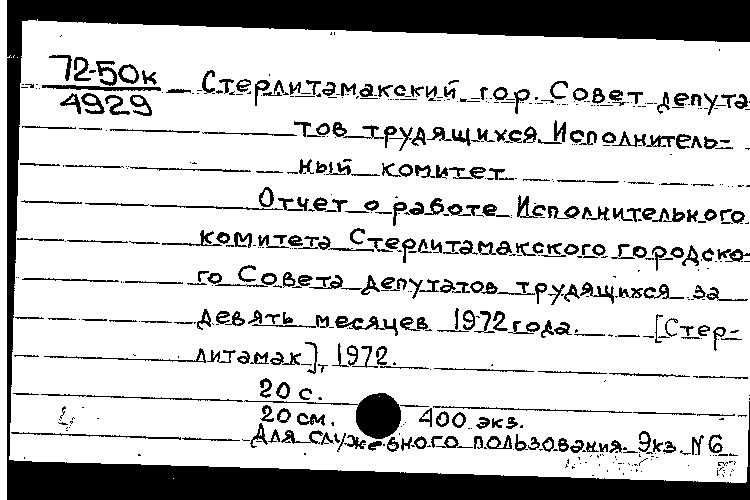 72-50к
4929
Стерлитамакский гор. Совет депута
тов трудящихся. Исполнитель-
ный комитет
Отчет о работе Исполнительного
комитета Стерлитамакского городско-
го Совета депутатов трудящихся за
девять месяцев 1972 года. [Стер-
литамак], 1972.
20 с.
20 см. 400 экз.
Для служебного пользования. Экз. N 6